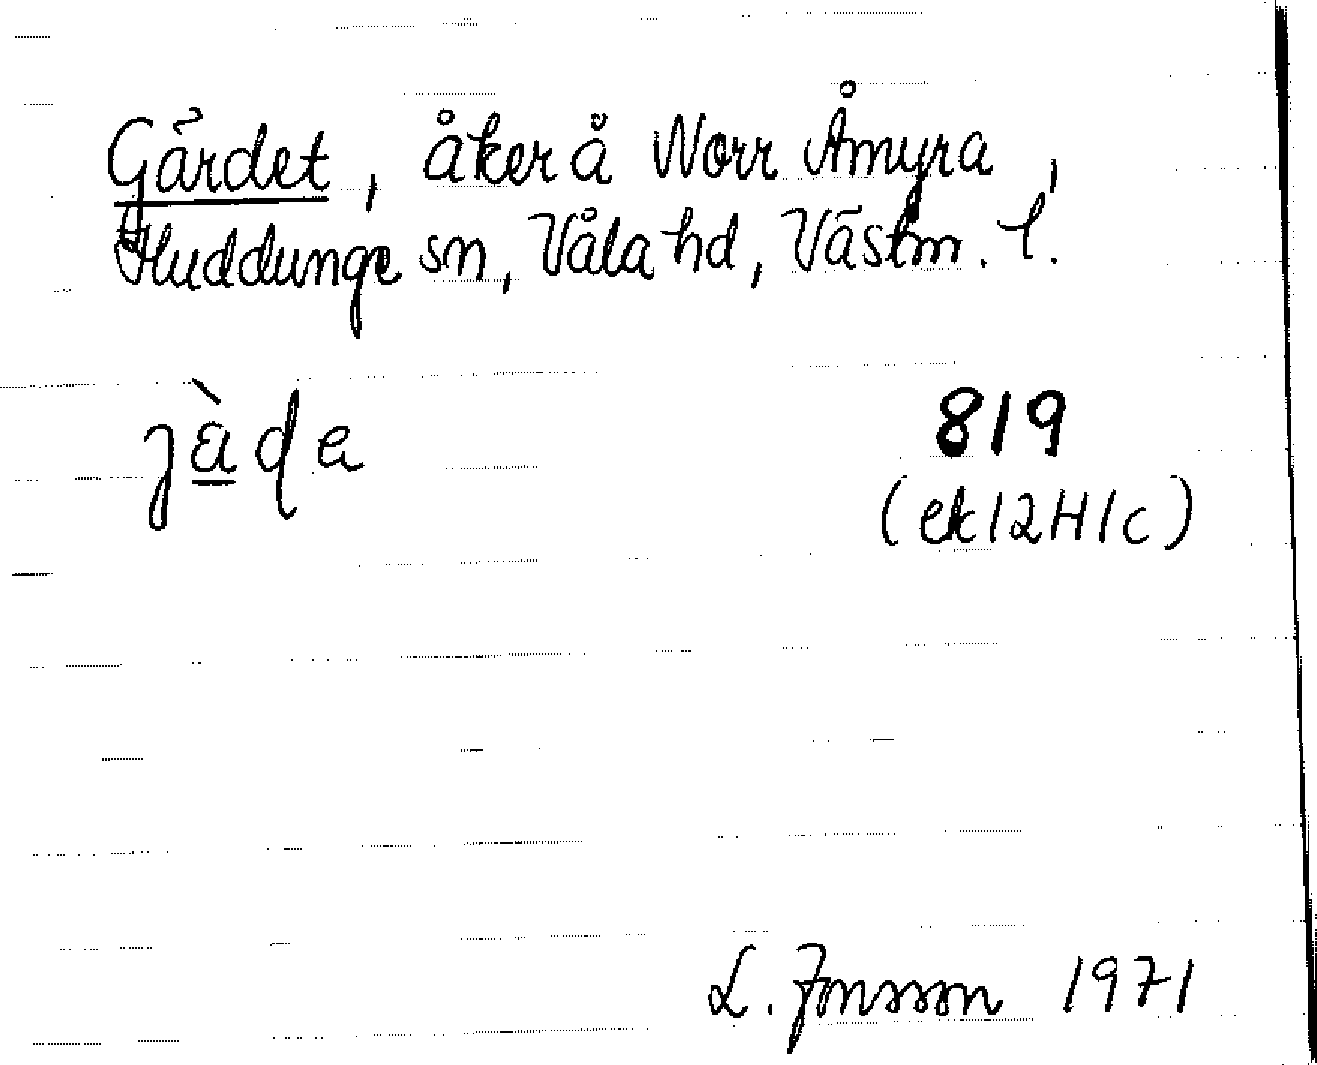 Gärdet, åker å Norr Åmyra,
Huddunge sn, Våla hd, Västm. l.
jàde
819
(ek 12H1c)
L. Jonsson 1971